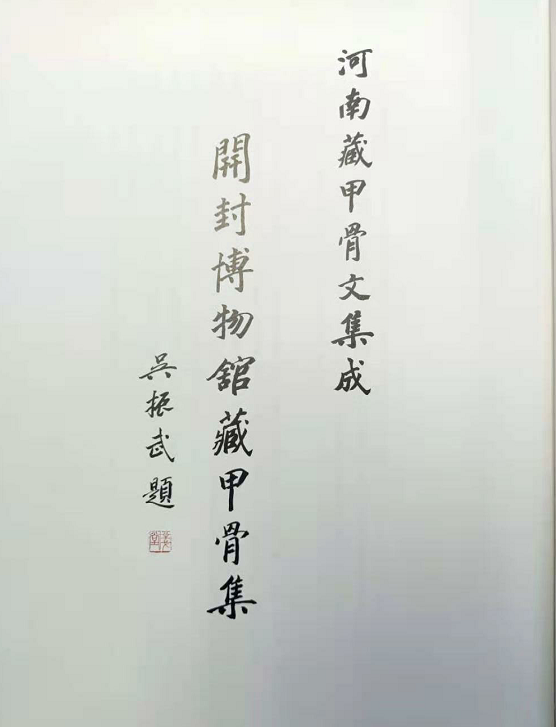 河南藏甲骨文集成
開封博物館藏甲骨集
吳振武題